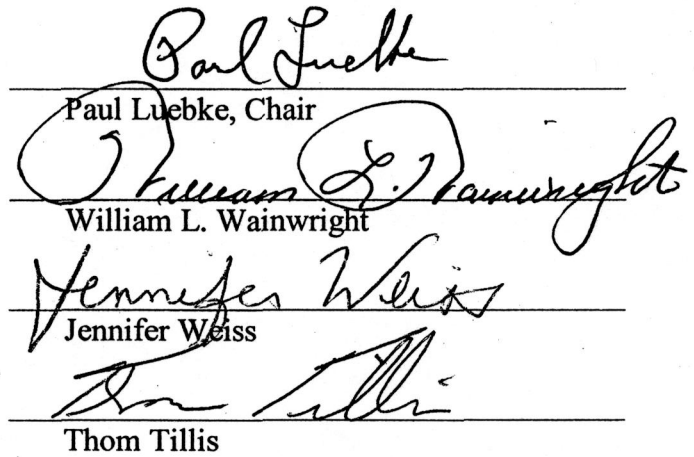 Paul Luebke
Paul Luebke, Chair
William L. Wainwright
William L. Wainwright
Jennifer Weiss
Jennifer Weiss
Thom Tillis
Thom Tillis